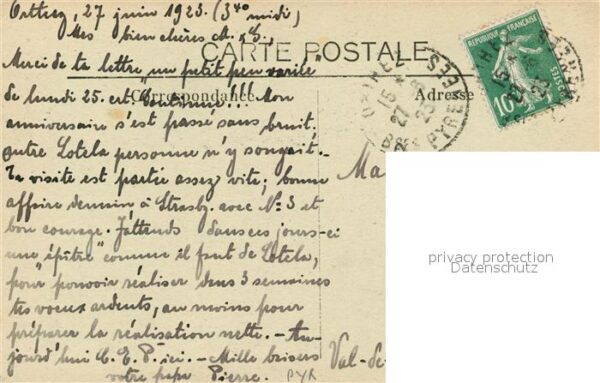 Orthez, 27 juin 1923. (3h40 midi)
Mes bien chères M. et S.,
CARTE POSTALE
Merci de ta lettre "un petit peu variée"
de lundi 25. crt. Continue!!! Mon
Correspondance
Adresse
anniversaire s'est passé sans bruit.
outre Lotela personne n'y songeait. -
Ta visite est partie assez vite; bonne
affaire demain à Strasbg. avec No 3 et
bon courage. J'attends dans ces jours-ci
une "épître" comme il faut de Lotela,
pour pouvoir réaliser dans 3 semaines
tes voeux ardents, au moins pour
préparer la réalisation nette. - Au-
jourd'hui C. E. P. ici. - Mille baisers
votre papa Pierre.
PYR
Ma
Val-de-
REPUBLIQUE FRANÇAISE
10c
POSTES
ORTHEZ
15
27
23
PYRENEES
privacy protection
Datenschutz